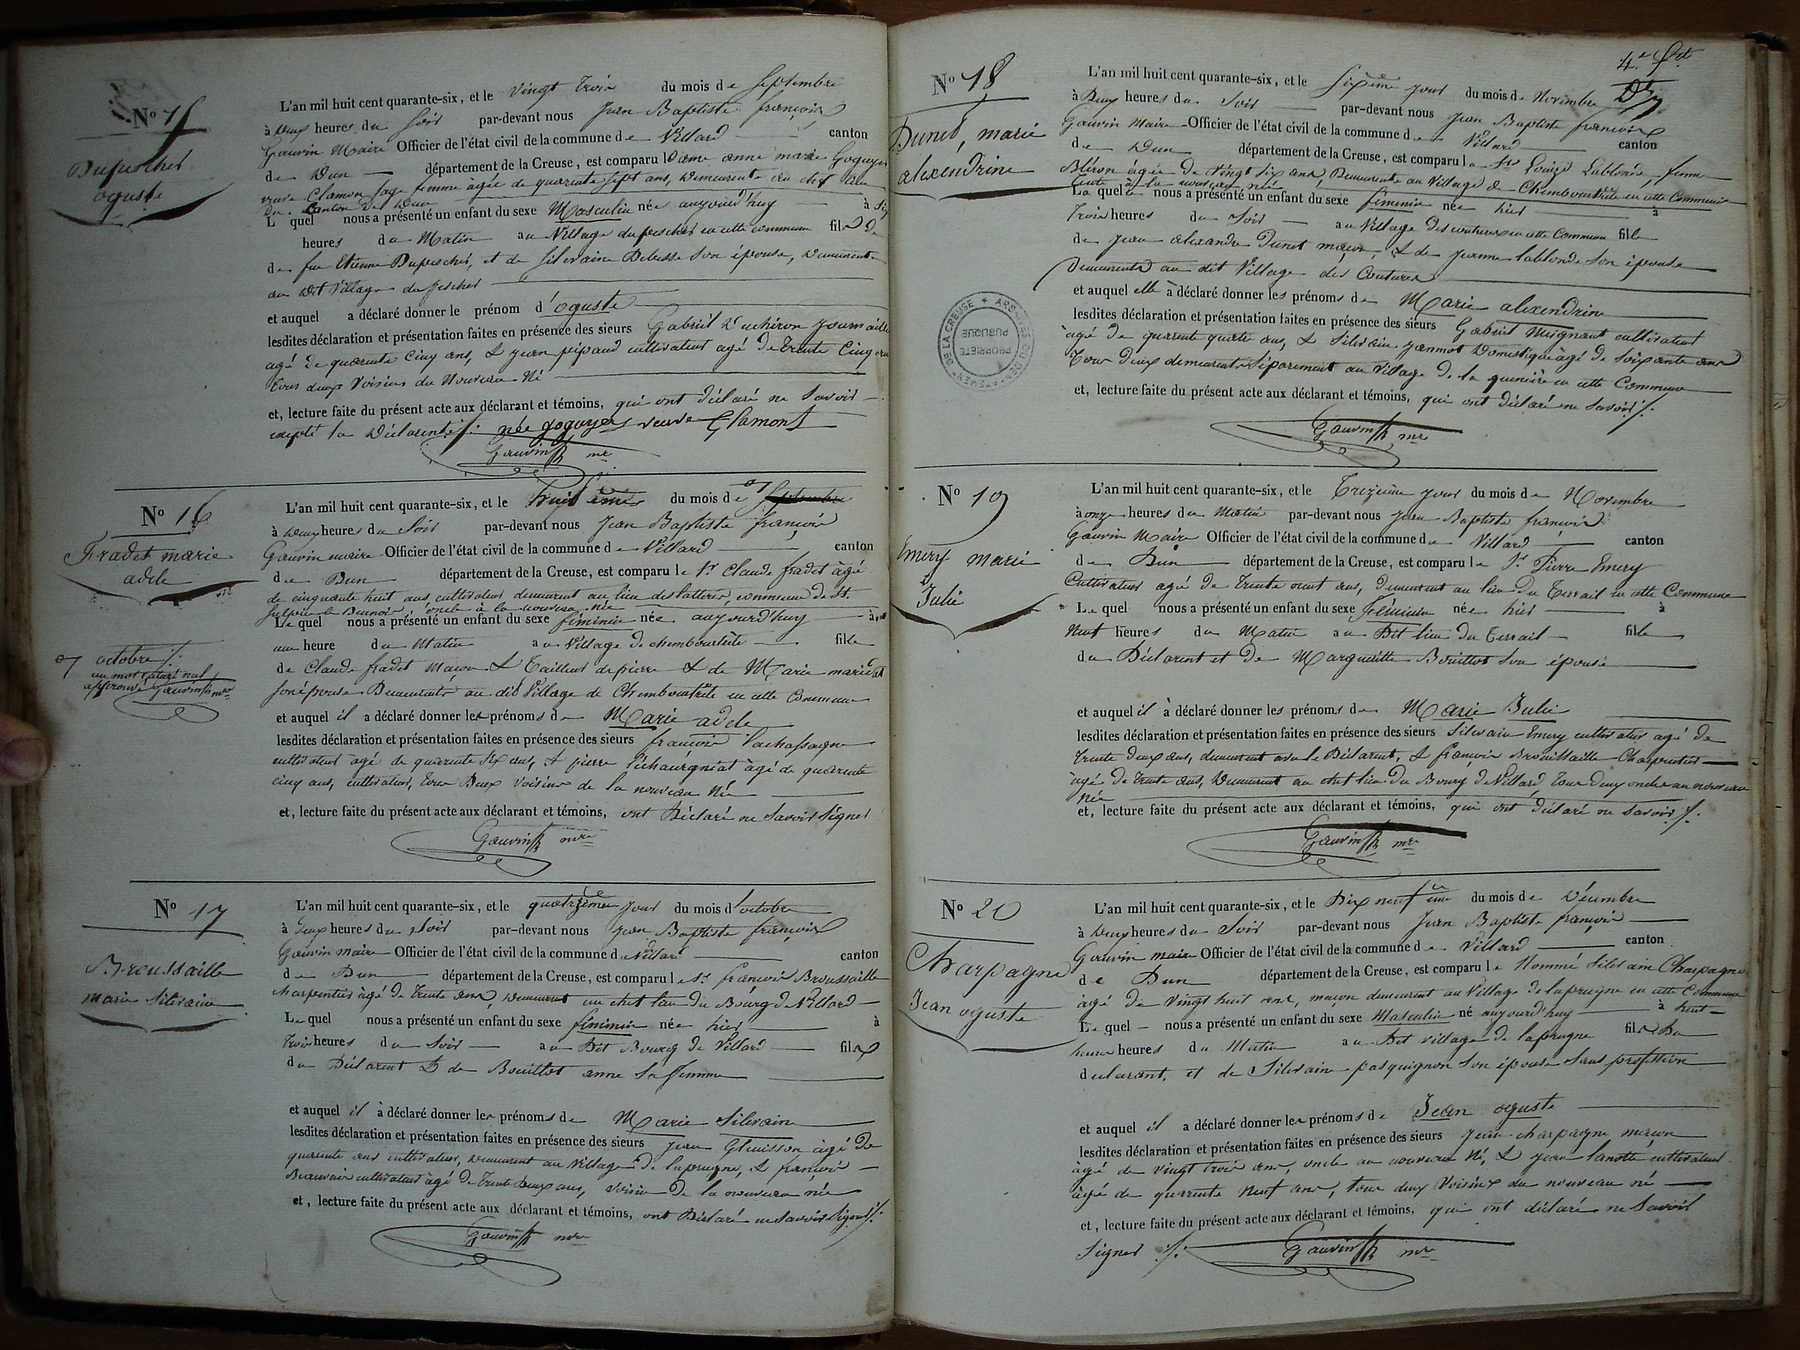 No 15
Dupescher
oguste
L'an mil huit cent quarante-six, et le vingt trois du mois de septembre
à deux heures du soir par-devant nous Jean Baptiste françois
Gauvin Maire Officier de l'état civil de la commune de Villard canton
de Dun département de la Creuse, est comparu Dame anne marie Goguyer
veuve Clamon sage femme agée de quarente sept ans, demeurente au
du Canton de Dun
L quel nous a présenté un enfant du sexe Masculin née aujourd'huy à six
heures du Matin au Village du pescher en cette commune fils de
de feu Etienne Dupescher, et de silvaine Delesse son épouse, demeurente
au dit village du pescher
et auquel a déclaré donner le prénom d'oguste
lesdites déclaration et présentation faites en présence des sieurs Gabriel Duchiron journailler
agé de quarente cinq ans, & jean pipaud cultivateur agé de trente cinq ans
tous deux voisins du Nouveau Né
et, lecture faite du présent acte aux déclarant et témoins, qui ont déclaré ne savoir
excepté la Déclarente ./. née goguyer veuve Clamont
Gauvin mre
No 16
Fradet marie
adele
octobre ./.
un mot rayé nul
approuvé Gauvin mre
L'an mil huit cent quarante-six, et le huit ème du mois de septembre
à deux heures du soir par-devant nous Jean Baptiste françois
Gauvin maire Officier de l'état civil de la commune de Villard canton
de Dun département de la Creuse, est comparu le sr Claude fradet àgé
de cinquente huit ans, cultivateur demeurent au lieu des lattères, commune de St.
sulpice le Dunois, oncle à la nouveau née
Le quel nous a présenté un enfant du sexe féminin née aujourd'huy à
une heure du Matin au Village de chemboutrete fille
de Claude fradet Maçon & Tailleur de pierre & de Marie
son épouse Demeurents au dit Village de Chemboutrete en cette Commune
et auquel il a déclaré donner les prénoms de Marie adele
lesdites déclaration et présentation faites en présence des sieurs françois Lachassagne
cultivateur agé de quarente six ans, & pierre Léchaurgniat àgé de quarente
cinq ans, cultivateur, tous Deux voisins de la nouveau Né
et, lecture faite du présent acte aux déclarant et témoins, ont Déclaré ne savoir signer
Gauvin mre
No 17
Broussaille
Marie silvaine
L'an mil huit cent quarante-six, et le quatorzième jour du mois d'octobre
à deux heures du soir par-devant nous Jean Baptiste françois
Gauvin maire Officier de l'état civil de la commune de Villard canton
de Dun département de la Creuse, est comparu le sr françois Broussaille
charpentier àgé de trente ans, demeurent au chef lieu du Bourg de Villard
Le quel nous a présenté un enfant du sexe féminin née hier à
trois heures du soir au Dit Bourg de Villard fille
du Déclarent & de Bouillot anne sa femme
et auquel il à déclaré donner les prénoms de Marie silvain
lesdites déclaration et présentation faites en présence des sieurs Jean Gluisson agé de
quarente ans cultivateur, demeurent au village de laprugne, & françois
Beauvais cultivateur àgé de trente deux ans, voisin de la nouveau née
et, lecture faite du présent acte aux déclarant et témoins, ont Déclaré ne savoir signer ./.
Gauvin mre
4.e ft
No 18
Dunet, marie
alexendrine
L'an mil huit cent quarante-six, et le sixème jour du mois de Novembre
à Deux heures du Soir par-devant nous Jean Baptiste françois
Gauvin Maire Officier de l'état civil de la commune de Villard canton
de Dun département de la Creuse, est comparu la Louise Lablonde, femme
Bléron àgée de vingt six ans, Demeurente au village de Chemboutrete en cette Commune
tente à la nouveau née
La quelle nous a présenté un enfant du sexe féminin née hier à
Trois heures du Soir au Village des coutures en cette Commune fille
de Jean alexandre Dunet maçon, & de jeanne lablonde son épouse
Demeurents au dit Village des Coutures
et auquel elle à déclaré donner les prénoms de Marie alexendrine
lesdites déclaration et présentation faites en présence des sieurs Gabriel Mignant cultivateur
àgé de quarente quatre ans, & silvain jannot Domestique agé de soixante ans
tous deux demeurents séparement au village de la gunière en cette Commune
et, lecture faite du présent acte aux déclarant et témoins, qui ont déclaré ne savoir ./.
Gauvin mre
ARCHIVES DEPARTEMENTALES DE LA CREUSE
PROPRIETE
PUBLIQUE
No 19
Emery Marie
Julie
L'an mil huit cent quarante-six, et le Treizème jour du mois de Novembre
à onze heures du Matin par-devant nous Jean Baptiste françois
Gauvin Maire Officier de l'état civil de la commune de Villard canton
de Dun département de la Creuse, est comparu le Sr Pierre Emery
Cultivateur agé de trente neuf ans, demeurent au lieu du Terrail en cette Commune
Le quel nous a présenté un enfant du sexe féminin née hier à
Neuf heures du Matin au Dit lieu du Terrail fille
du Déclarent et de Marguerite Bouillot son épouse
et auquel il à déclaré donner les prénoms de Marie Julie
lesdites déclaration et présentation faites en présence des sieurs Silvain Emery cultivateur agé de
trente deux ans, demeurent avec le Déclarent, & françois Brouissaille Charpentier
agé de trente ans, demeurent au chef lieu du Bourg de Villard tous deux oncles au nouveau
née
et, lecture faite du présent acte aux déclarant et témoins, qui ont déclaré ne savoir ./.
Gauvin mre
No 20
Charpagne
Jean oguste
L'an mil huit cent quarante-six, et le Dix neuf ème du mois de Décembre
à deux heures du Soir par-devant nous Jean Baptiste françois
Gauvin maire Officier de l'état civil de la commune de Villard canton
de Dun département de la Creuse, est comparu le Nommé Silvain Charpagne
àgé de Vingt huit ans, maçon demeurent au Village de laprugne en cette Commune
Le quel nous a présenté un enfant du sexe Masculin né aujourd'huy à huit
heures du Matin au Dit village de laprugne fils Du
déclarant, et de Silvaine pasquignon son épouse sans profession
et auquel il a déclaré donner les prénoms de Jean oguste
lesdites déclaration et présentation faites en présence des sieurs Jean charpagne maçon
agé de vingt trois ans, oncle au nouveau Né, & jean lanotte cultivateur
àgé de quarente Neuf ans, tous deux Voisins du nouveau né
et, lecture faite du présent acte aux déclarant et témoins, qui ont déclaré ne Savoir
signer ./. Gauvin mre